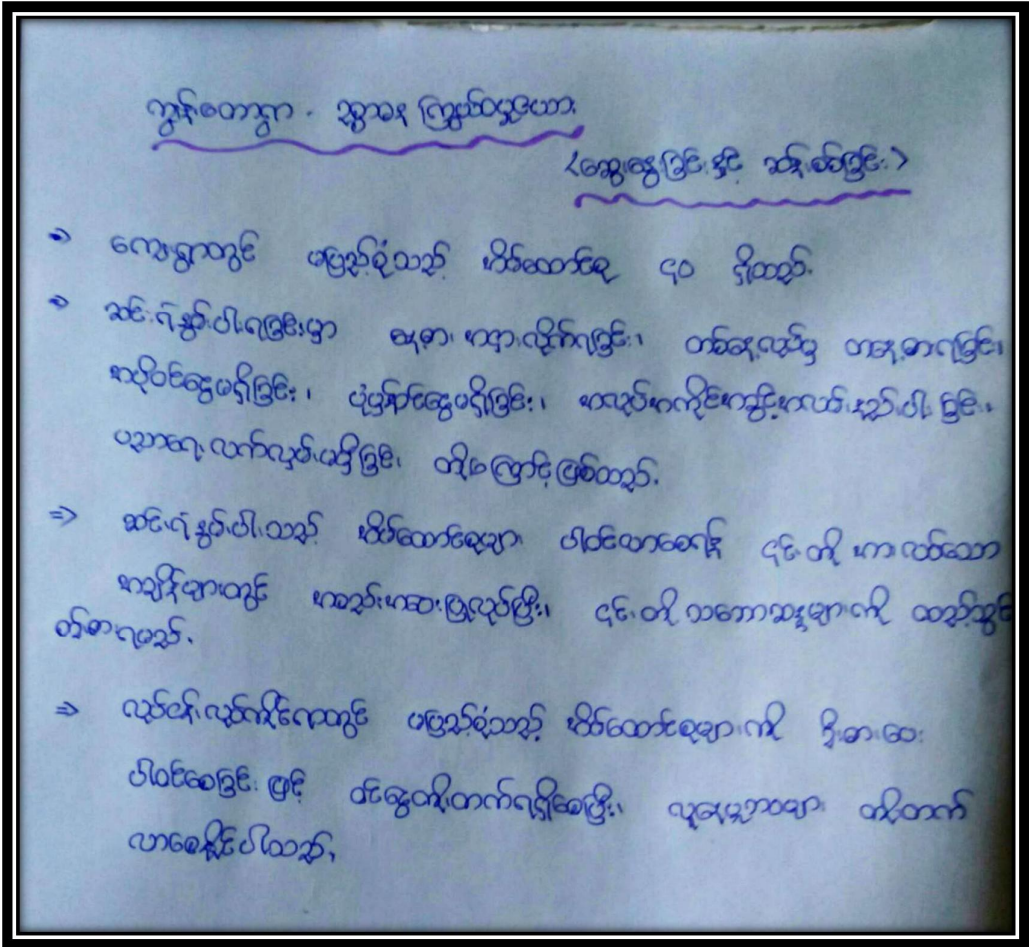 ကျွန်တော့ရွာ - ဥစ္စာဓန ကြွယ်ဝမှုယော
<ဆွေးနွေးခြင်းနှင့် ဆန်းစစ်ခြင်း>
ကျေးရွာတွင် မပြည့်စုံသည့် အိမ်ထောင်စု ၄၀ ရှိသည်။
ဆင်းရဲနွမ်းပါးရခြင်းမှာ နေ့စား အငှားလိုက်ရခြင်း၊ တစ်နေ့လုပ်မှ တနေ့စားရခြင်း၊
အပိုဝင်ငွေမရှိခြင်း၊ ပုံမှန်ဝင်ငွေမရှိခြင်း၊ အလုပ်အကိုင်အခွင့်အလမ်းနည်းပါးခြင်း၊
ပညာရေး လက်လှမ်းမမှီခြင်း တို့ကြောင့်ဖြစ်သည်။
ဆင်းရဲနွမ်းပါးသည့် အိမ်ထောင်စုများ ပါဝင်လာစေရန် ၎င်းတို့ အားလပ်သော
အချိန်များတွင် အစည်းအဝေးပြုလုပ်ပြီး၊ ၎င်းတို့ သဘောဆန္ဒများကို ထည့်သွင်း
စဉ်းစားရမည်။
လုပ်ငန်းလုပ်ကိုင်ရာတွင် မပြည့်စုံသည့် အိမ်ထောင်စုများကို ဦးစားပေး
ပါဝင်စေခြင်း ဖြင့် ဝင်ငွေတိုးတက်ရရှိစေပြီး၊ လူနေမှုဘဝများ တိုးတက်
လာစေနိုင်ပါသည်။